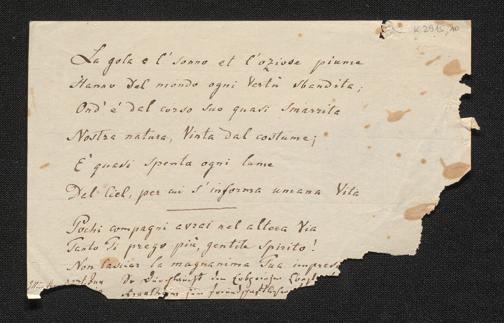 K 2915,10
La gola e l' sonno et l'oziose piume
Hanno del mondo ogni Vertù Sbandita;
Ond' é dal corso suo quasi smarrita
Nostra natura, Vinta dal costume;
E' quasi spenta ogni lume
Del Ciel, per cui s'informa umana Vita
Pochi compagni avrai nel altora Via
Tanto Ti prego più, gentile Spirito!
Non lasciar la magnanima Tua impres